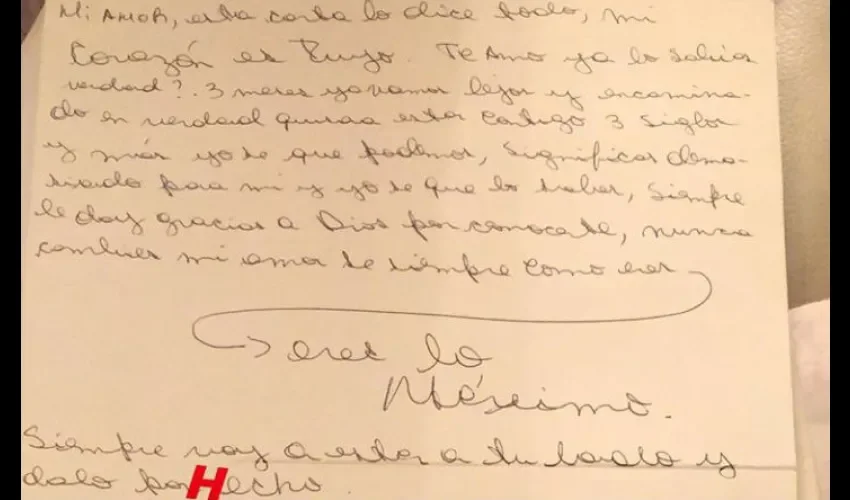 Mi AMOR, esta carta lo dice todo, mi
Corazón es Tuyo. Te Amo ya lo sabías
verdad? 3 meses ya vamos lejos y encamina-
do en verdad quiero estar contigo 3 siglos
y más yo se que podemos, significas dema-
siado para mi y yo se que lo sabes, siempre
le doy gracias a Dios por conocerte, nunca
cambies mi amor se siempre como eres
eres lo
Máximo.
Siempre voy a estar a tu lado y
dalo por Hecho.